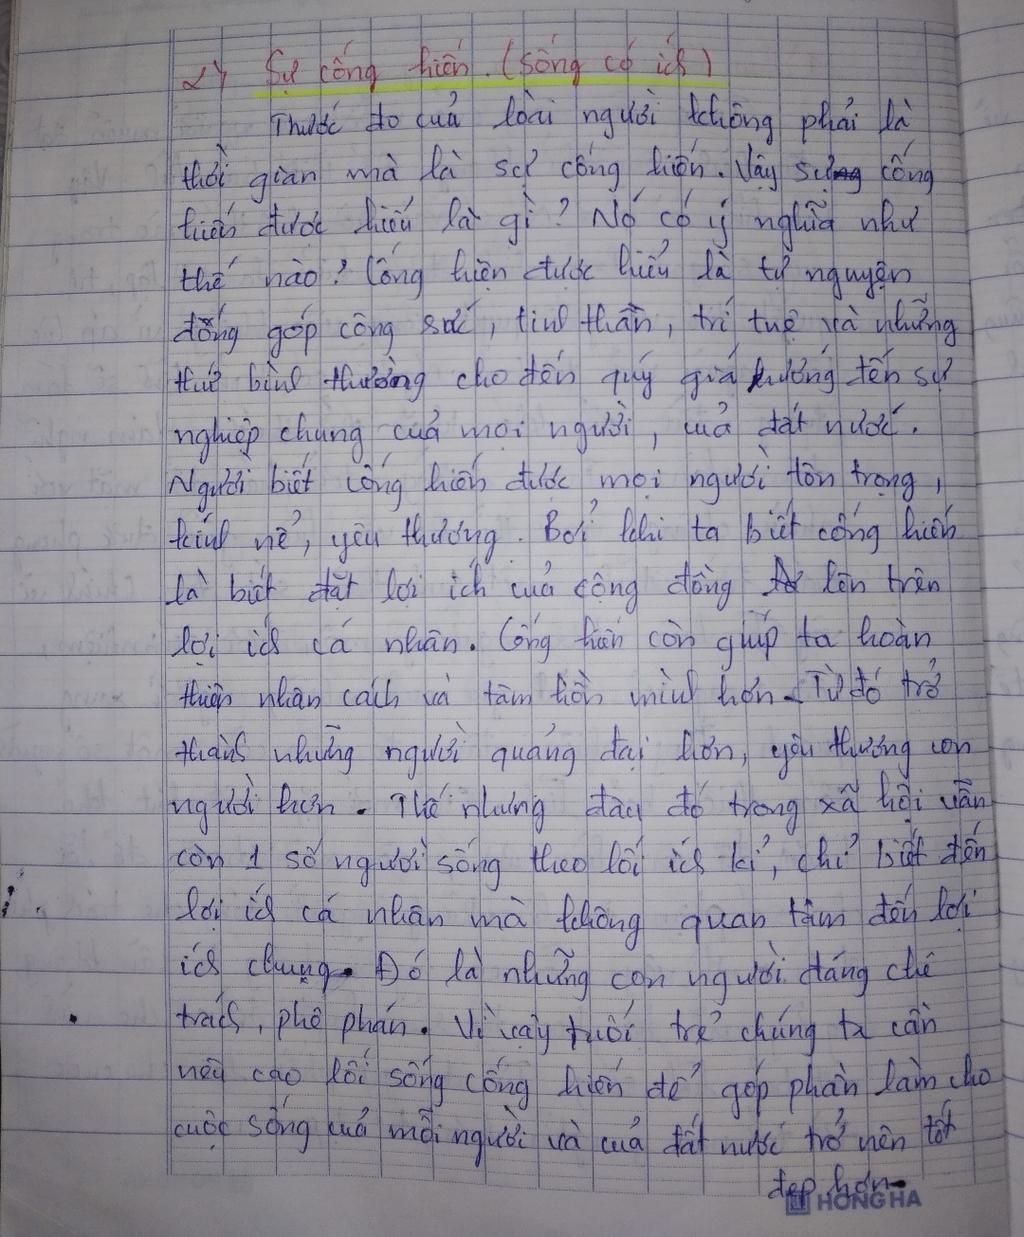 2) Sự cống hiến. (Sống có ích)
Thước đo của loài người không phải là
thời gian mà là sự cống hiến. Vậy sự cống
hiến được hiểu là gì? Nó có ý nghĩa như
thế nào? Cống hiện được hiểu là tự nguyện
đống góp công sức, tinh thần, trí tuệ và những
thứ bình thường cho đến quý giá hướng đến sự
nghiệp chung của mọi người, của đất nước.
Người biết cống hiến được mọi người tôn trọng,
kính nể, yêu thương. Bởi khi ta biết cống hiến
là biết đặt lợi ích của cộng đồng lên trên
lợi ích cá nhân. Cống hiến còn giúp ta hoàn
thiện nhân cách và tâm hồn mình hơn. Từ đó trở
thành những người quảng đại hơn, yêu thương con
người hơn. Thế nhưng đâu đó trong xã hội vẫn
còn 1 số người sống theo lối ích kỉ, chỉ biết đến
lợi ích cá nhân mà không quan tâm đến lợi
ích chung. Đó là những con người đáng chê
trách, phê phán. Vì vậy tuổi trẻ chúng ta cần
nêu cao lối sống cống hiến để góp phần làm cho
cuộc sống của mỗi người và của đất nước trở nên tốt
đẹp hơn.
HONG HA